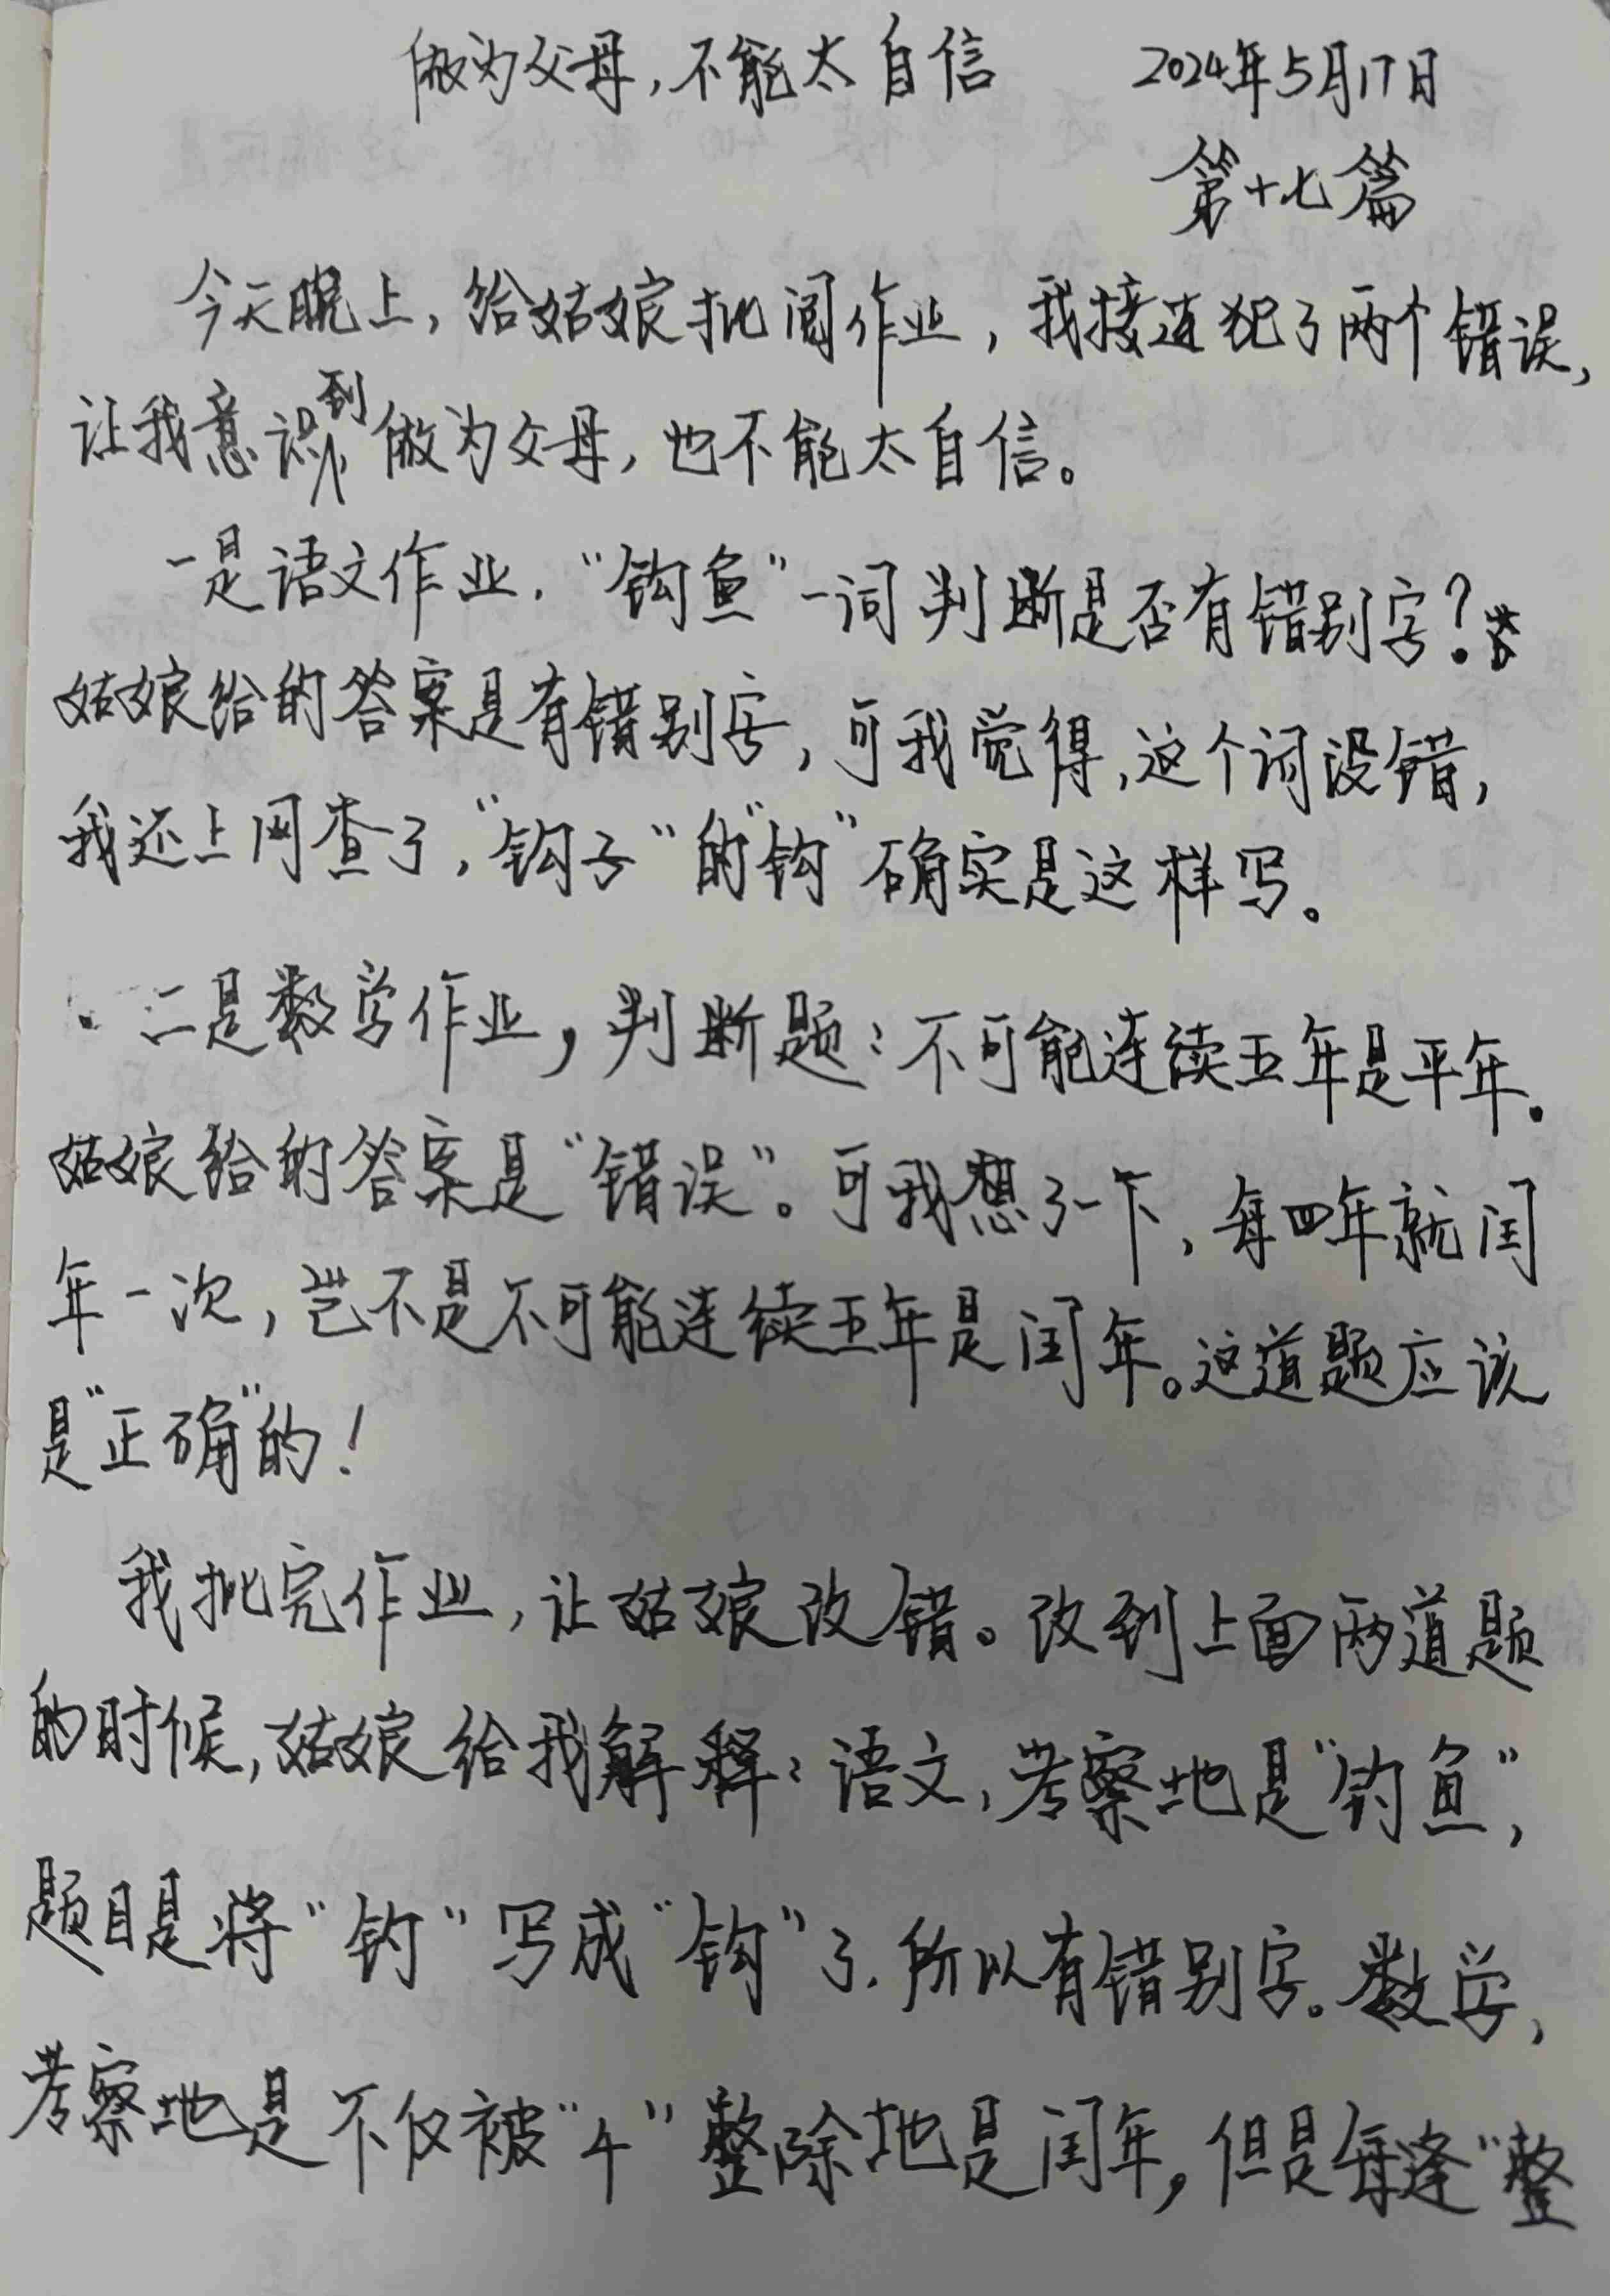 做为父母，不能太自信 2024年5月17日
第十七篇
今天晚上，给姑娘批阅作业，我接连犯了两个错误，
让我意识到，做为父母，也不能太自信。
一是语文作业，“钩鱼”一词判断是否有错别字？
姑娘给的答案是有错别字，可我觉得，这个词没错，
我还上网查了，“钩子”的“钩”确实是这样写。
二是数学作业，判断题：不可能连续五年是平年.
姑娘给的答案是“错误”。可我想了一下，每四年就闰
年一次，岂不是不可能连续五年是闰年。这道题应该
是“正确”的！
我批完作业，让姑娘改错。改到上面两道题
的时候，姑娘给我解释：语文，考察地是“钓鱼”，
题目是将“钓”写成“钩”了.所以有错别字。数学，
考察地是不仅被“4”整除地是闰年，但是每逢“整